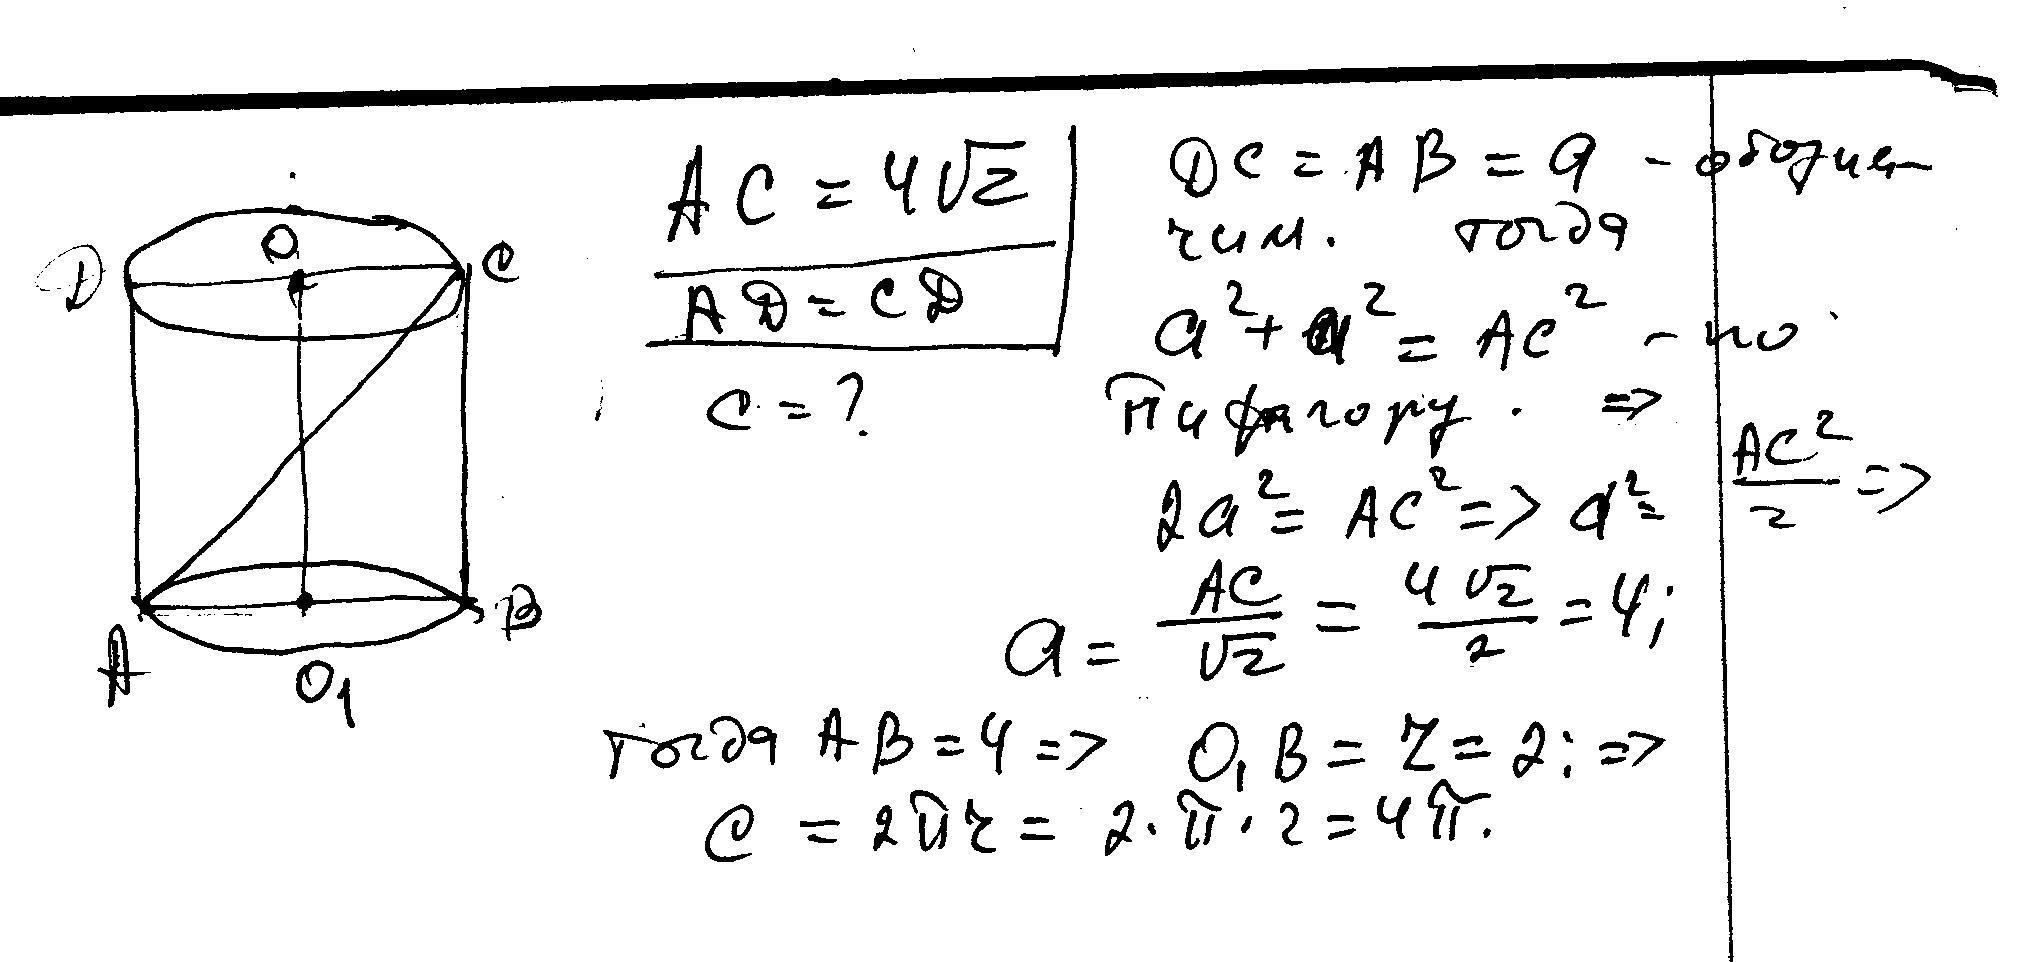 D
O
C
A
O₁
B
AC = 4√2
AD = CD
C = ?
DC = AB = a - обозна-
чим. тогда
a² + a² = AC² - по
Пифагору. =>
2a² = AC² => a² = AC²/2 =>
a = AC/√2 = 4√2/2 = 4;
тогда AB = 4 => O₁B = r = 2; =>
C = 2πr = 2·π·2 = 4π.